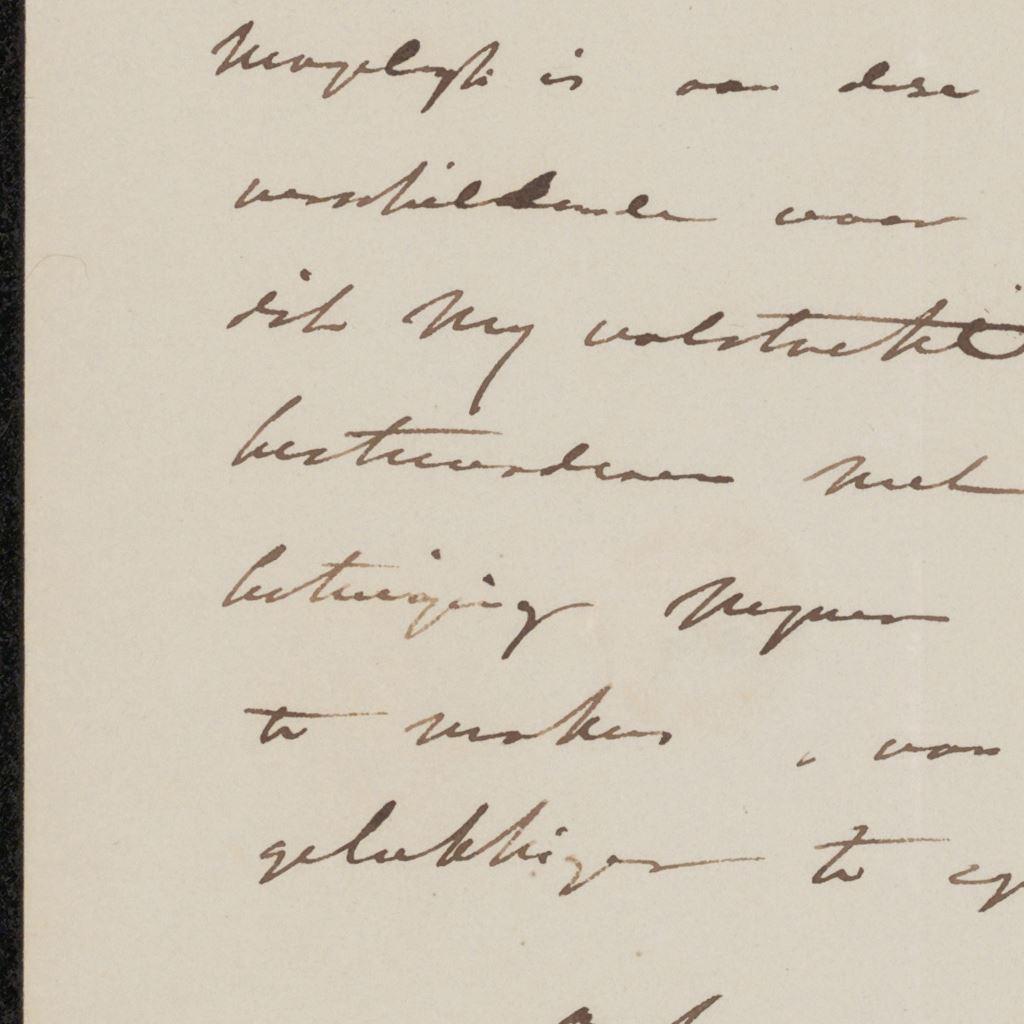 mogelyk is aan deze
verschillende voor
dit my volstrekt
bestuurderen met
betuiging myner
te maken, van
gelukkiger te